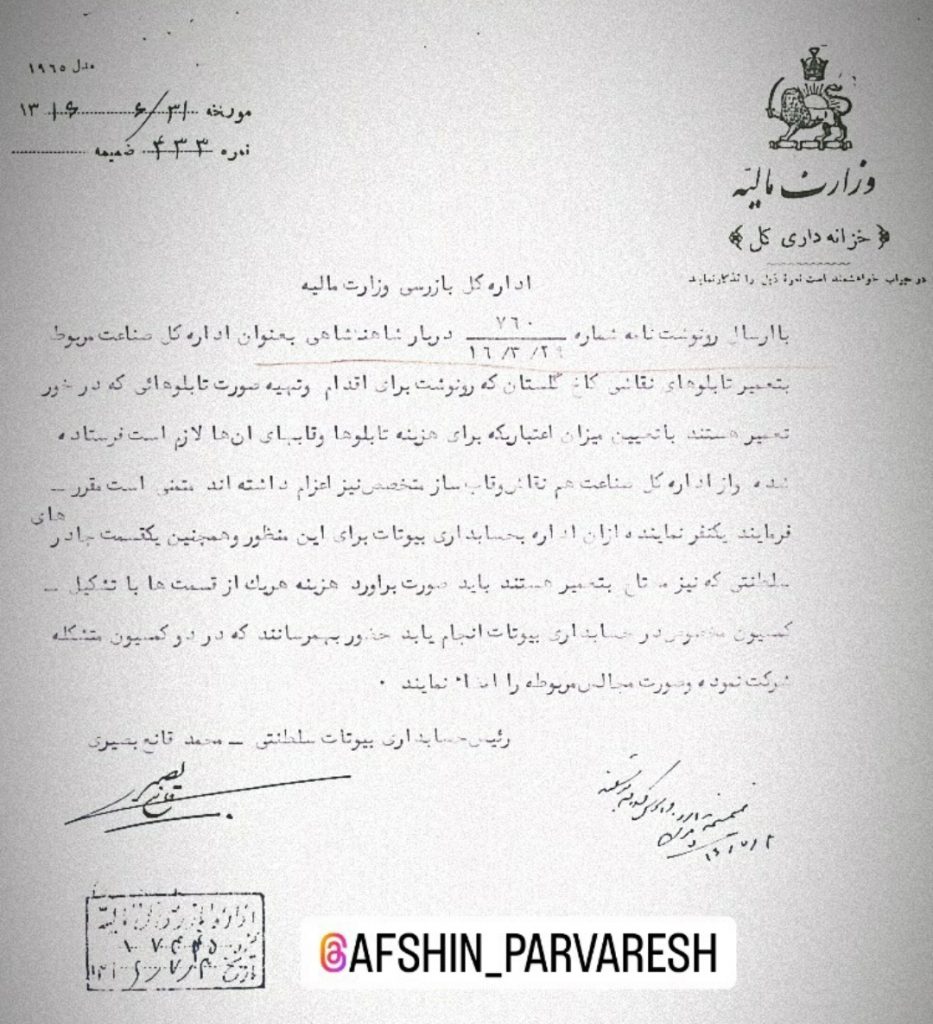 مدل ۱۹٦٥
مورخه ۳۱/ ٦ ۱۳۱٦
نمره ۴۳۳ ضمیمه
وزارت مالیّه
خزانه داری کل
در جواب خواهشمند است نمرهٔ ذیل را تذکار نمایند
اداره کل بازرسی وزارت مالیه
با ارسال رونوشت نامه شماره ۷٦۰ / ۱٦/۳/۲۹ دربار شاهنشاهی بعنوان اداره کل صناعت مربوط
بتعمیر تابلوهای نقاشی کاخ گلستان که رونوشت برای اقدام وتهیه صورت تابلوهائی که در خور
تعمیر هستند باتعیین میزان اعتباریکه برای هزینه تابلوها وقابهای ان‌ها لازم است فرستاده
شده واز اداره کل صناعت هم نقاش وقاب ساز متخصص نیز اعزام داشته اند متمنی است مقرر ــ
فرمایند یکنفر نماینده ازان اداره بحسابداری بیوتات برای این منظور وهمچنین یکقسمت چادر های
سلطنتی که نیز محتاج بتعمیر هستند باید صورت براورد هزینه هریک از قسمت ها با تشکیل ــ
کمسیون مخصوص در حسابداری بیوتات انجام یابد حضور بهمرسانند که در دو کمسیون متشکله
شرکت نموده وصورت مجالس مربوطه را امضاء نمایند ۰
رئیس حسابداری بیوتات سلطنتی ــ محمد قانع بصیری
اداره بازرسی کل مالیّه
نمره ۱۷۴۴۵
تاریخ
@AFSHIN_PARVARESH